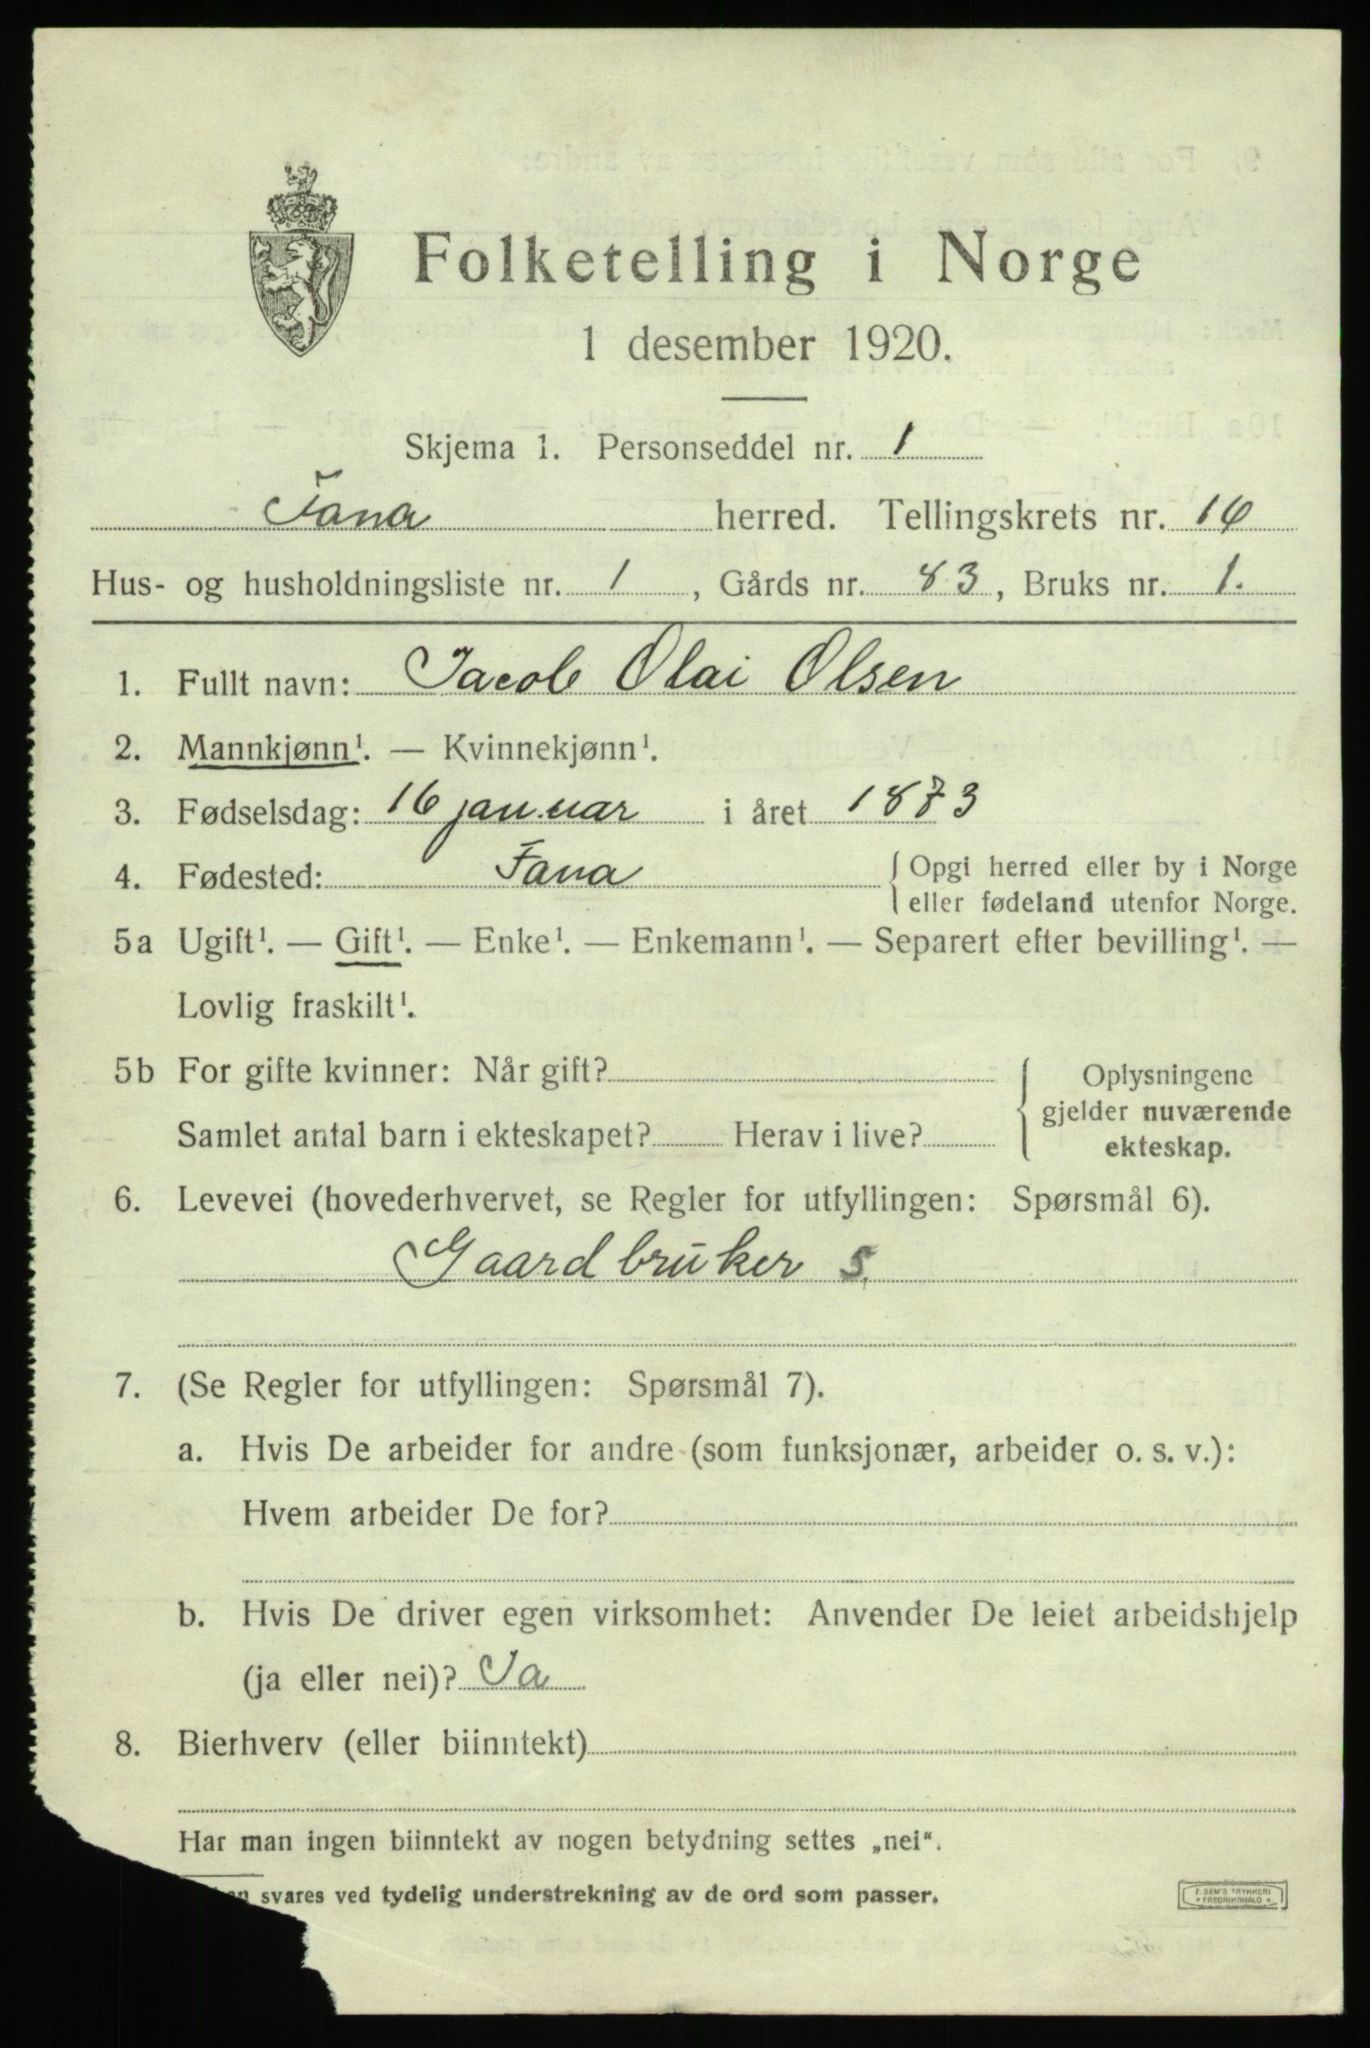 Folketelling i Norge
1 desember 1920.
Skjema 1. Personseddel nr. 1
Fana herred. Tellingskrets nr. 16
Hus- og husholdningsliste nr. 1, Gårds nr. 83, Bruks nr. 1.
1. Fullt navn: Jacob Olai Olsen
2. Mannkjønn¹. — Kvinnekjønn¹.
3. Fødselsdag: 16 januar i året 1873
4. Fødested: Fana { Opgi herred eller by i Norge
eller fødeland utenfor Norge.
5a Ugift¹. — Gift¹. — Enke¹. — Enkemann¹. — Separert efter bevilling¹. —
Lovlig fraskilt¹.
5b For gifte kvinner: Når gift?
Samlet antal barn i ekteskapet? Herav i live?
{ Oplysningene
gjelder nuværende
ekteskap.
6. Levevei (hovederhvervet, se Regler for utfyllingen: Spørsmål 6).
Gaardbruker S.
7. (Se Regler for utfyllingen: Spørsmål 7).
a. Hvis De arbeider for andre (som funksjonær, arbeider o. s. v.):
Hvem arbeider De for?
b. Hvis De driver egen virksomhet: Anvender De leiet arbeidshjelp
(ja eller nei)? Ja
8. Bierhverv (eller biinntekt)
Har man ingen biinntekt av nogen betydning settes „nei“.
svares ved tydelig understrekning av de ord som passer.
E. SEM'S TRYKKERI
FREDRIKSHALD